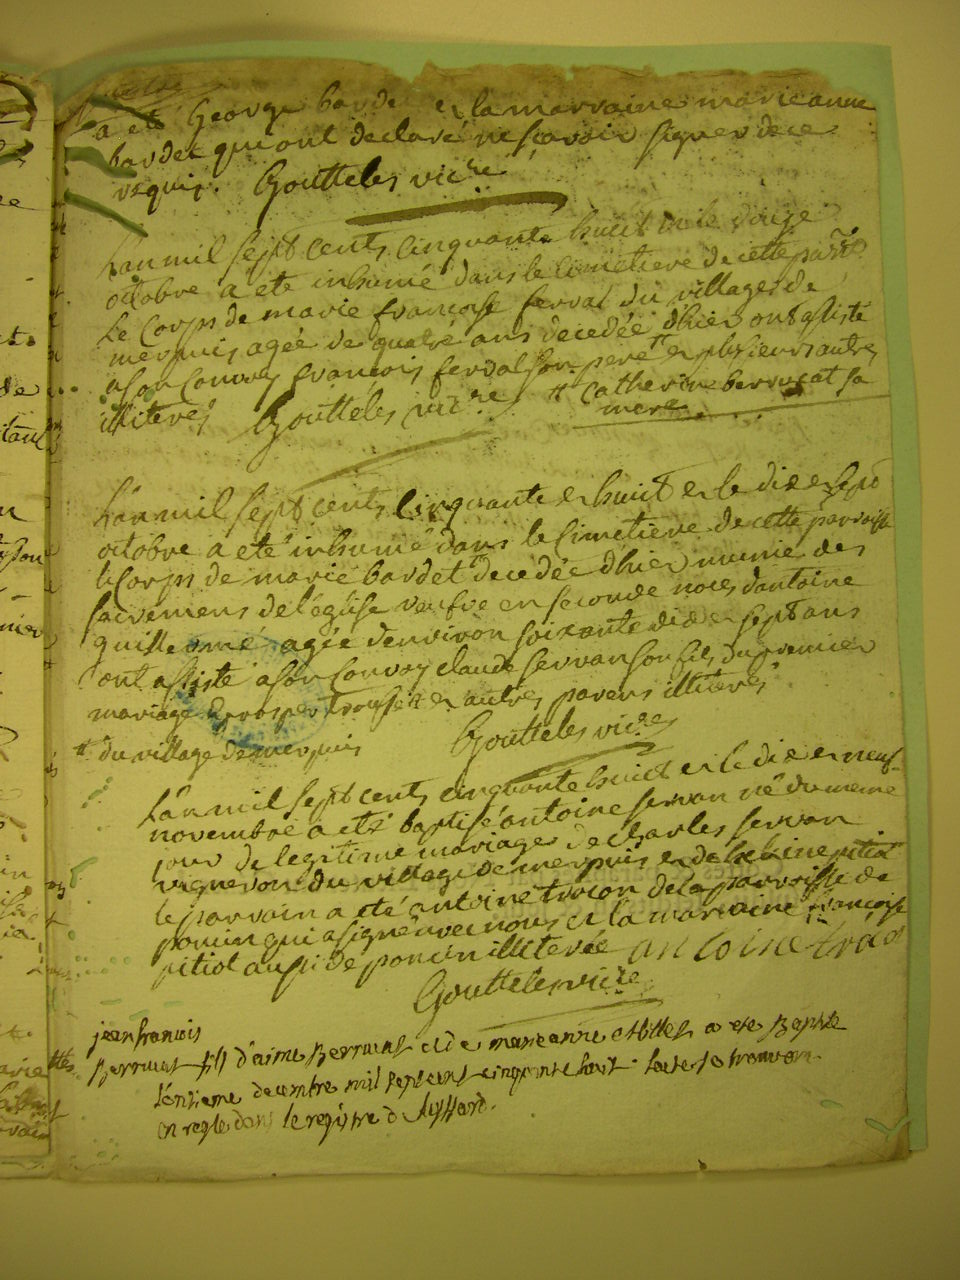 a eté George bardet et la marraine marie anne
bardet qui ont declaré ne sçavoir signer de ce
requis. Goutteles vicre
L'an mil sept cents cinquante huit et le douze
octobre a eté inhumé dans le cimetiere de cette parsse
le Corps de marie françoise ferval du village de
merpuis agée de quatre ans decedée d'hier ont assisté
a son Convoy françois ferval son pere # et plusieurs autres
illiterés Goutteles vicre # Catherine berrucat sa
mere.
L'an mil sept cents Cinquante et huit et le dix et sept
octobre a eté inhumé dans le Cimetiere de cette parroisse
le Corps de marie bardet # decedée d'hier munie des
sacremens de l'église veufve en seconde noces d'antoine
guillomé agée d'environ soixante dix et sept ans
ont assisté a son Convoy claude servan son fils du premier
mariage prosper et autres parens illiterés
# du village de merpuis Goutteles vicre
L'an mil sept cents cinquante huit et le dix et neuf
novembre a eté baptisé antoine servan né du meme
jour de legitime mariage de Charles servan
vigneron du village de merpuis et de pitiot
le parrain a eté antoine de la parroisse de
poncin qui a signé avec nous et la marraine françoise
pitiot aussi de poncin illiterée antoine
Goutteles vicre
jean francois
Berrucat fils d'aimé Berrucat et de marie anne a eté Baptisé
l'onzieme decembre mil sept cent cinquante huit
en regle dans le registre de